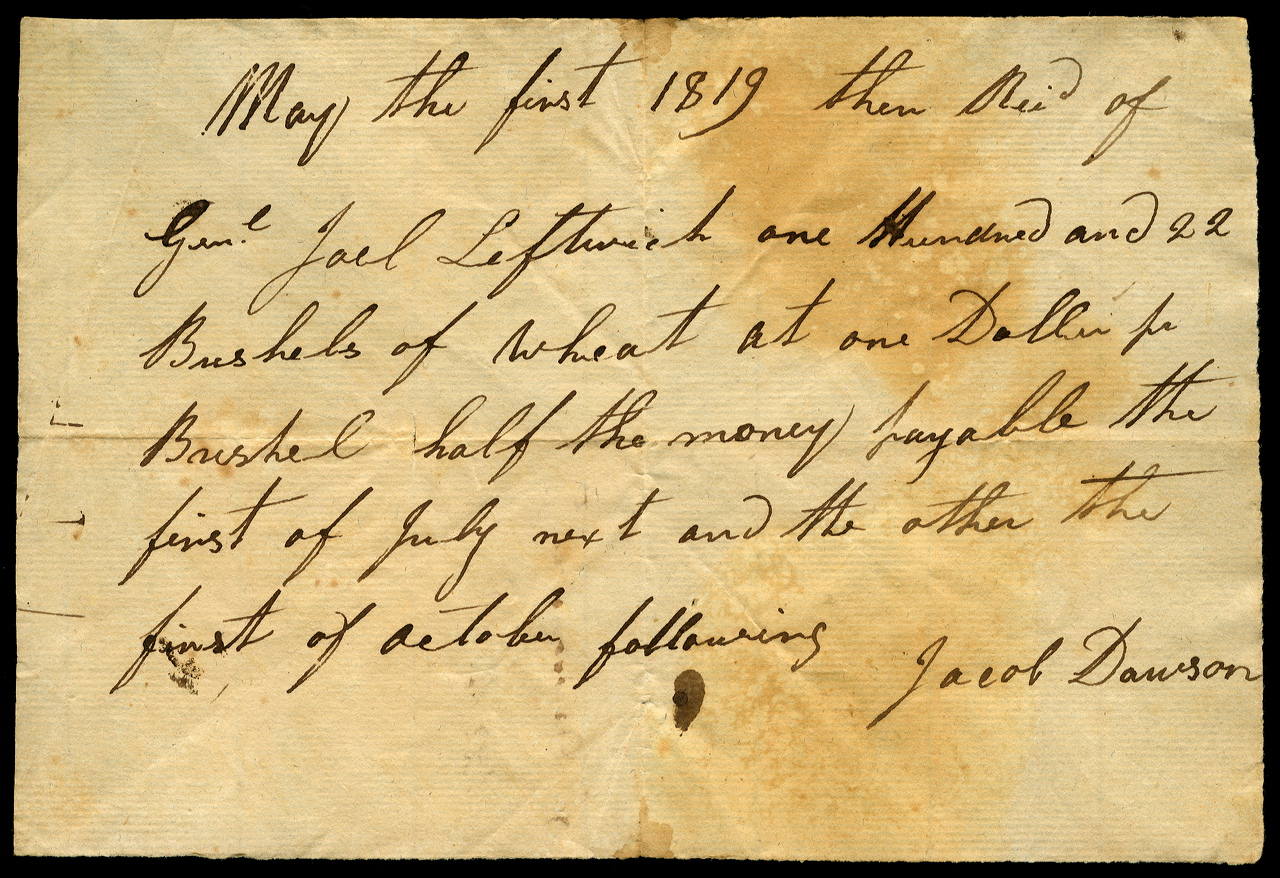 May the first 1819 then Rec'd of
Gen.l Joel Leftwich one Hundred and 22
Bushels of Wheat at one Doller pr
Bushel half the money payable the
first of July next and the other the
first of october following
Jacob Dawson